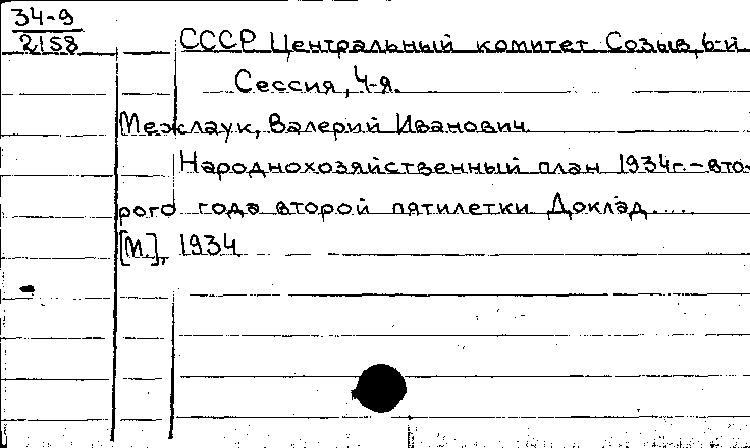 34-9
2158
СССР Центральный комитет Созыв, 6-й
Сессия, 4-я.
Межлаук, Валерий Иванович
Народнохозяйственный план 1934г.-вто-
рого года второй пятилетки Доклад.....
[М.], 1934